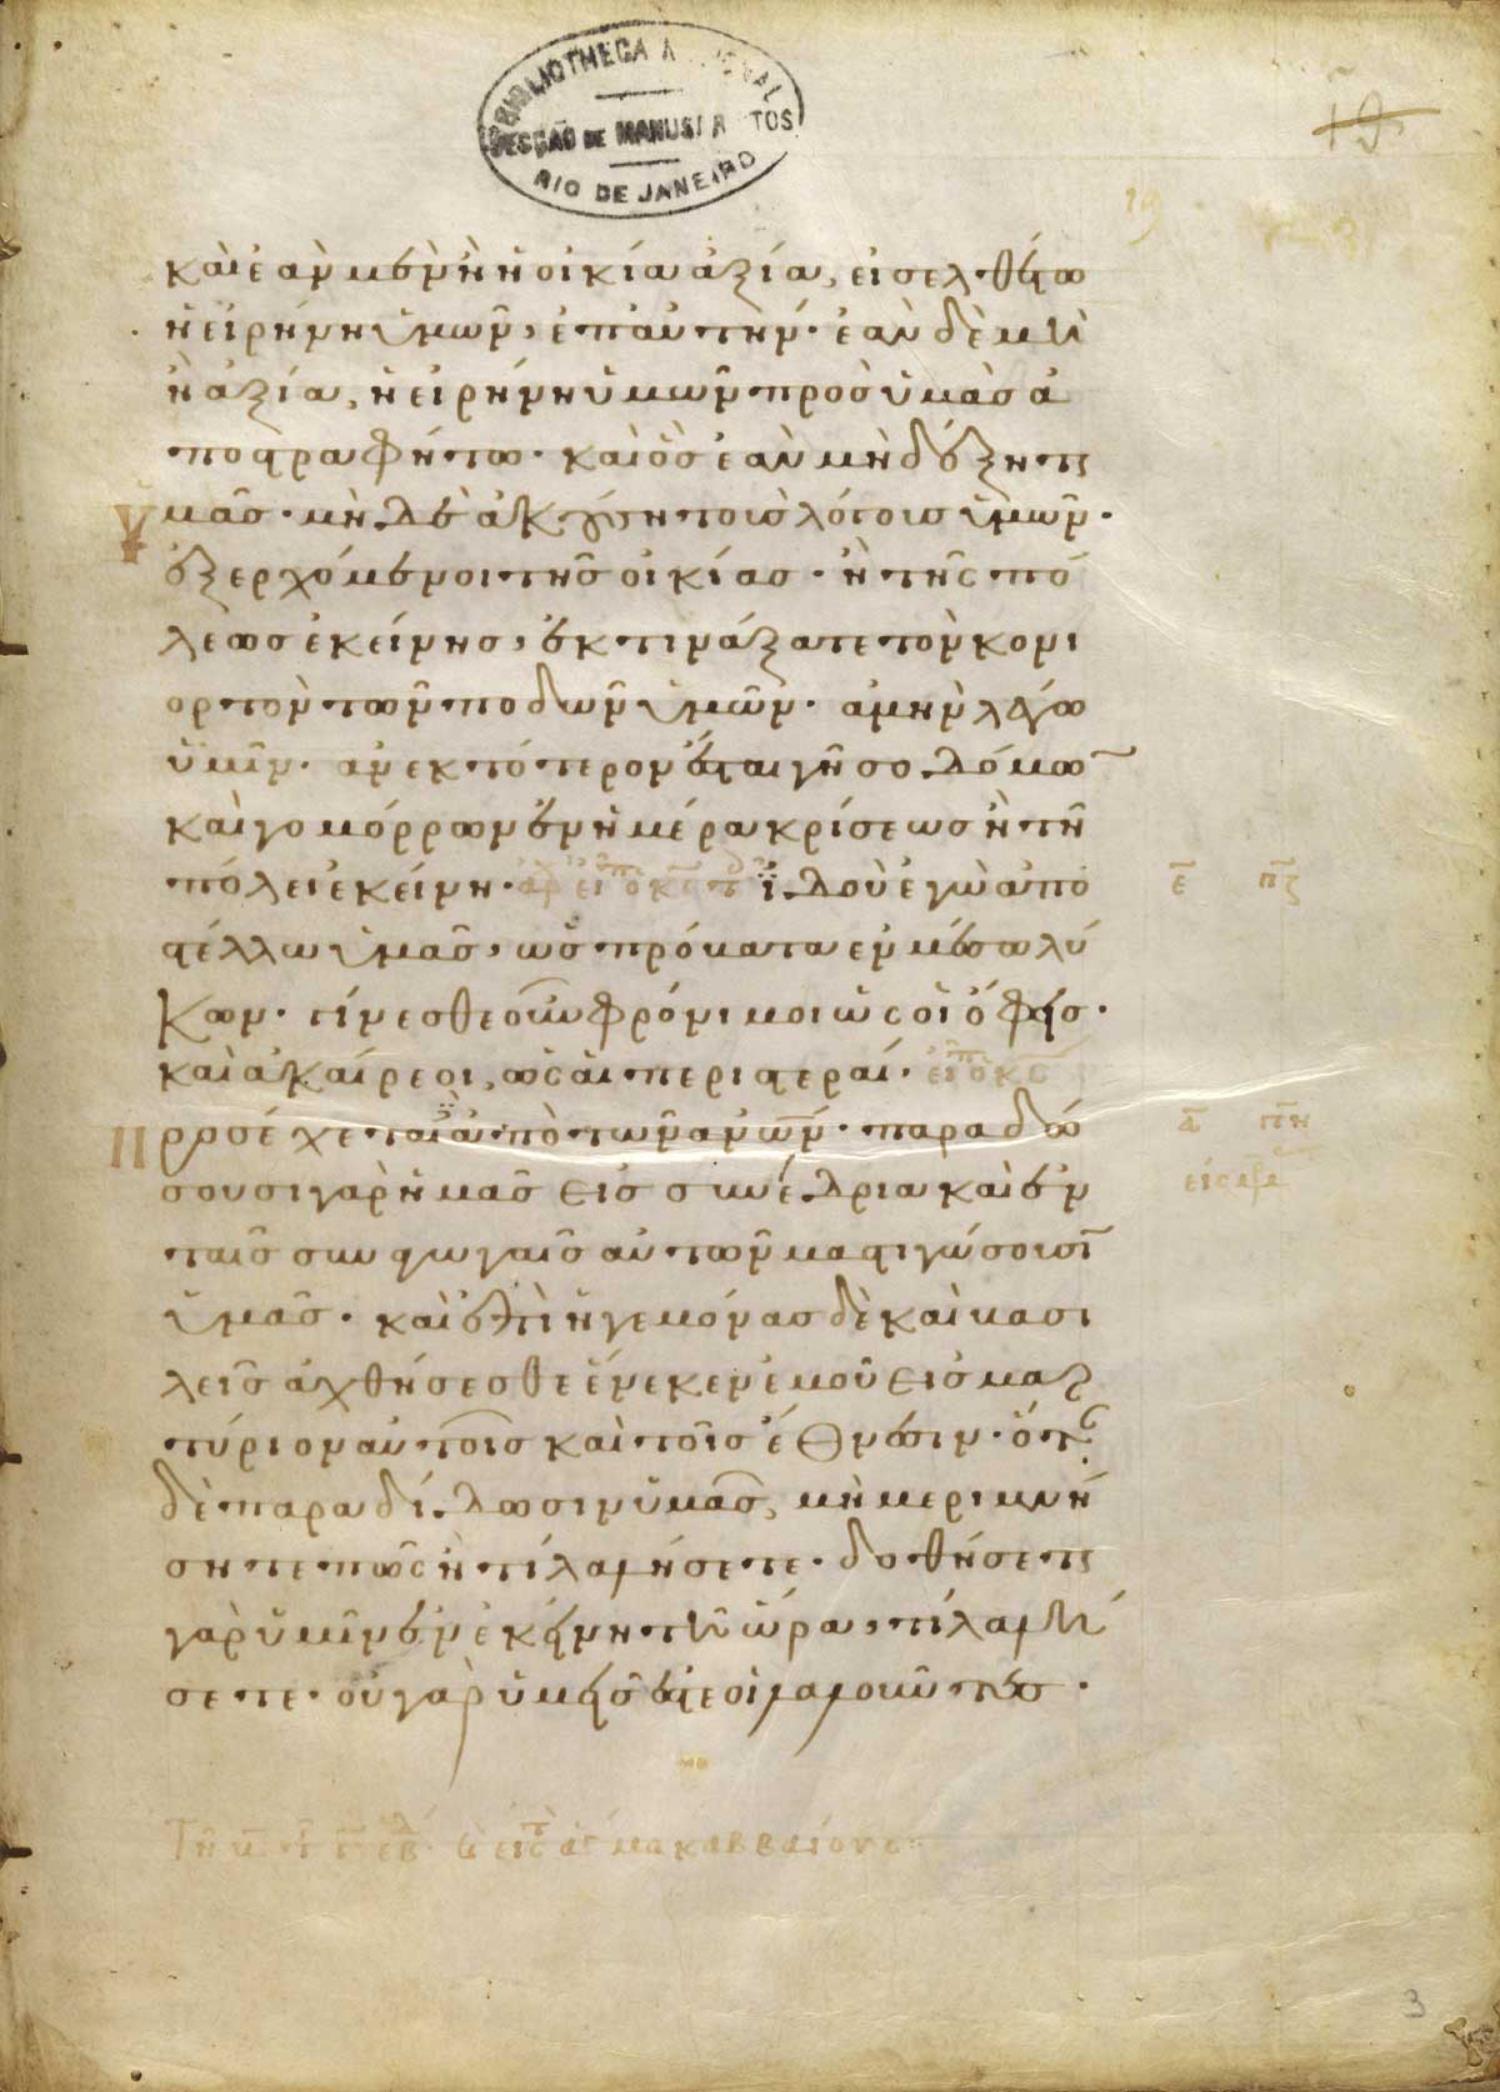 BIBLIOTHECA NACIONAL
SECÇÃO DE MANUSCRIPTOS
RIO DE JANEIRO
19
19
καὶ ἐὰν μὲν ἦ ἡ οἰκία ἀξία, εἰσελθέτω
ἡ εἰρήνη ὑμῶν, ἐπ' αὐτήν· ἐὰν δὲ μὴ
ἦ ἀξία, ἡ εἰρήνη ὑμῶν πρὸς ὑμὰς ἀ
ποστραφήτω· καὶ ὃς ἐὰν μὴ δέξηται
Ὑμᾶς· μὴ δὲ ἀκούσῃ τοὺς λόγους ὑμῶν·
ἐξερχόμενοι τῆς οἰκίας· ἢ τῆς πό
λεως ἐκείνης, ἐκτινάξατε τὸν κονι
ορτὸν τῶν ποδῶν ὑμῶν· ἀμὴν λέγω
ὑμῖν· ἀνεκτότερον ἔσται γῆ σοδόμων
καὶ γομόρρων ἐν ἡμέρα κρίσεως ἢ τῆ
πόλει ἐκείνη· ἰδοὺ ἐγὼ ἀπο ε̅ π̅ζ
στέλλω ὑμᾶς, ὡς πρόβατα ἐν μέσω λύ
κων· γίνεσθε οὖν φρόνιμοι ὡς οἱ ὄφεις·
καὶ ἀκαίρεοι, ὡς αἱ περιστεραί·
Προσέχεται ἀπὸ τῶν ἀν̅ω̅ν· παραδώ α̅ π̅η
σουσι γὰρ ἡμᾶς εἰς συνέδρια καὶ ἐν
ταῖς συναγωγαῖς αὐτῶν μαστιγώσουσι
ὑμᾶς· καὶ ἐπὶ ἡγεμόνας δὲ καὶ βασι
λεῖς ἀχθήσεσθε ἕνεκεν ἐμοῦ εἰς μαρ
τύριον αὐτοῖς καὶ τοῖς ἔθνεσιν· ὅταν
δὲ παραδίδωσιν ὑμᾶς, μὴ μεριμνή
σητε πῶς ἢ τί λαλήσετε· δοθήσεται
γὰρ ὑμῖν ἐν ἐκείνη τῆ ὥρα, τί λαλή
σετε· οὐ γὰρ ὑμεῖς ἐστε οἱ λαλοῦντες·
μακαββαίους
3